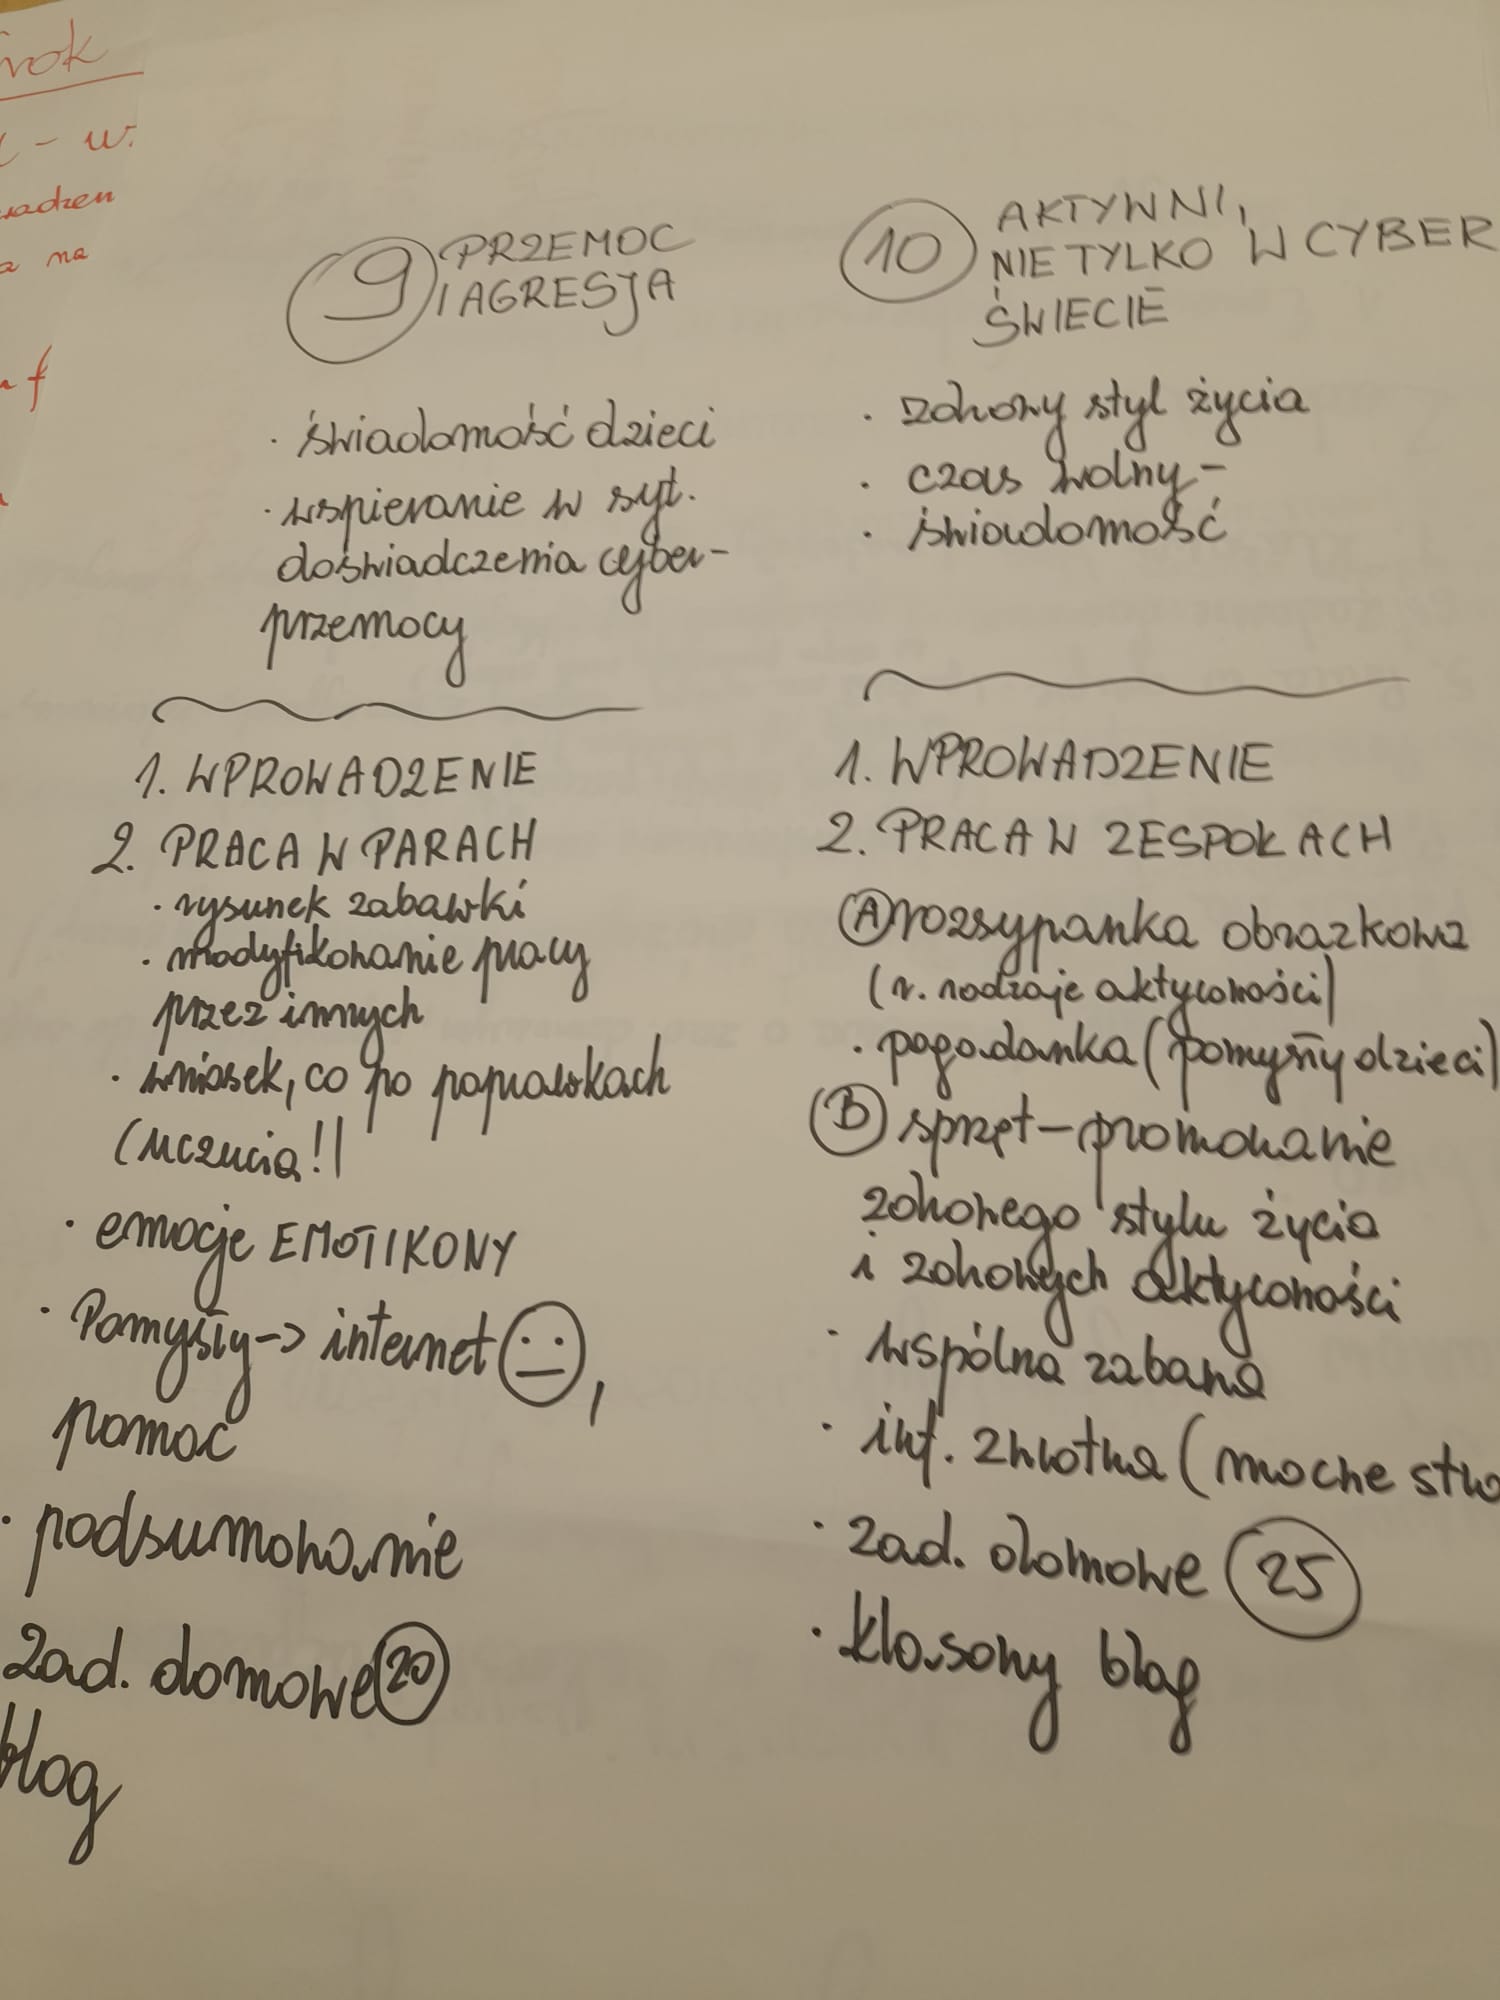 rok
- w.
na
9 PRZEMOC
I AGRESJA
· świadomość dzieci
· wspieranie w syt.
doświadczenia cyber-
przemocy
1. WPROWADZENIE
2. PRACA W PARACH
· rysunek zabawki
· modyfikowanie pracy
przez innych
· wniosek, co po poprawkach
(uczucia!)
· emocje EMOTIKONY
· Pomysły -> internet ,
pomoc
· podsumowanie
zad. domowe 20
blog
10 AKTYWNI,
NIE TYLKO W CYBER
ŚWIECIE
· zdrowy styl życia
· czas wolny -
· świadomość
1. WPROWADZENIE
2. PRACA W ZESPOŁACH
A rozsypanka obrazkowa
(r. rodzaje aktywności)
· pogadanka (pomysły dzieci)
B sprzęt - promowanie
zdrowego stylu życia
i zdrowych aktywności
· wspólna zabawa
· inf. zwrotna (mocne
· zad. domowe 25
· klasowy blog